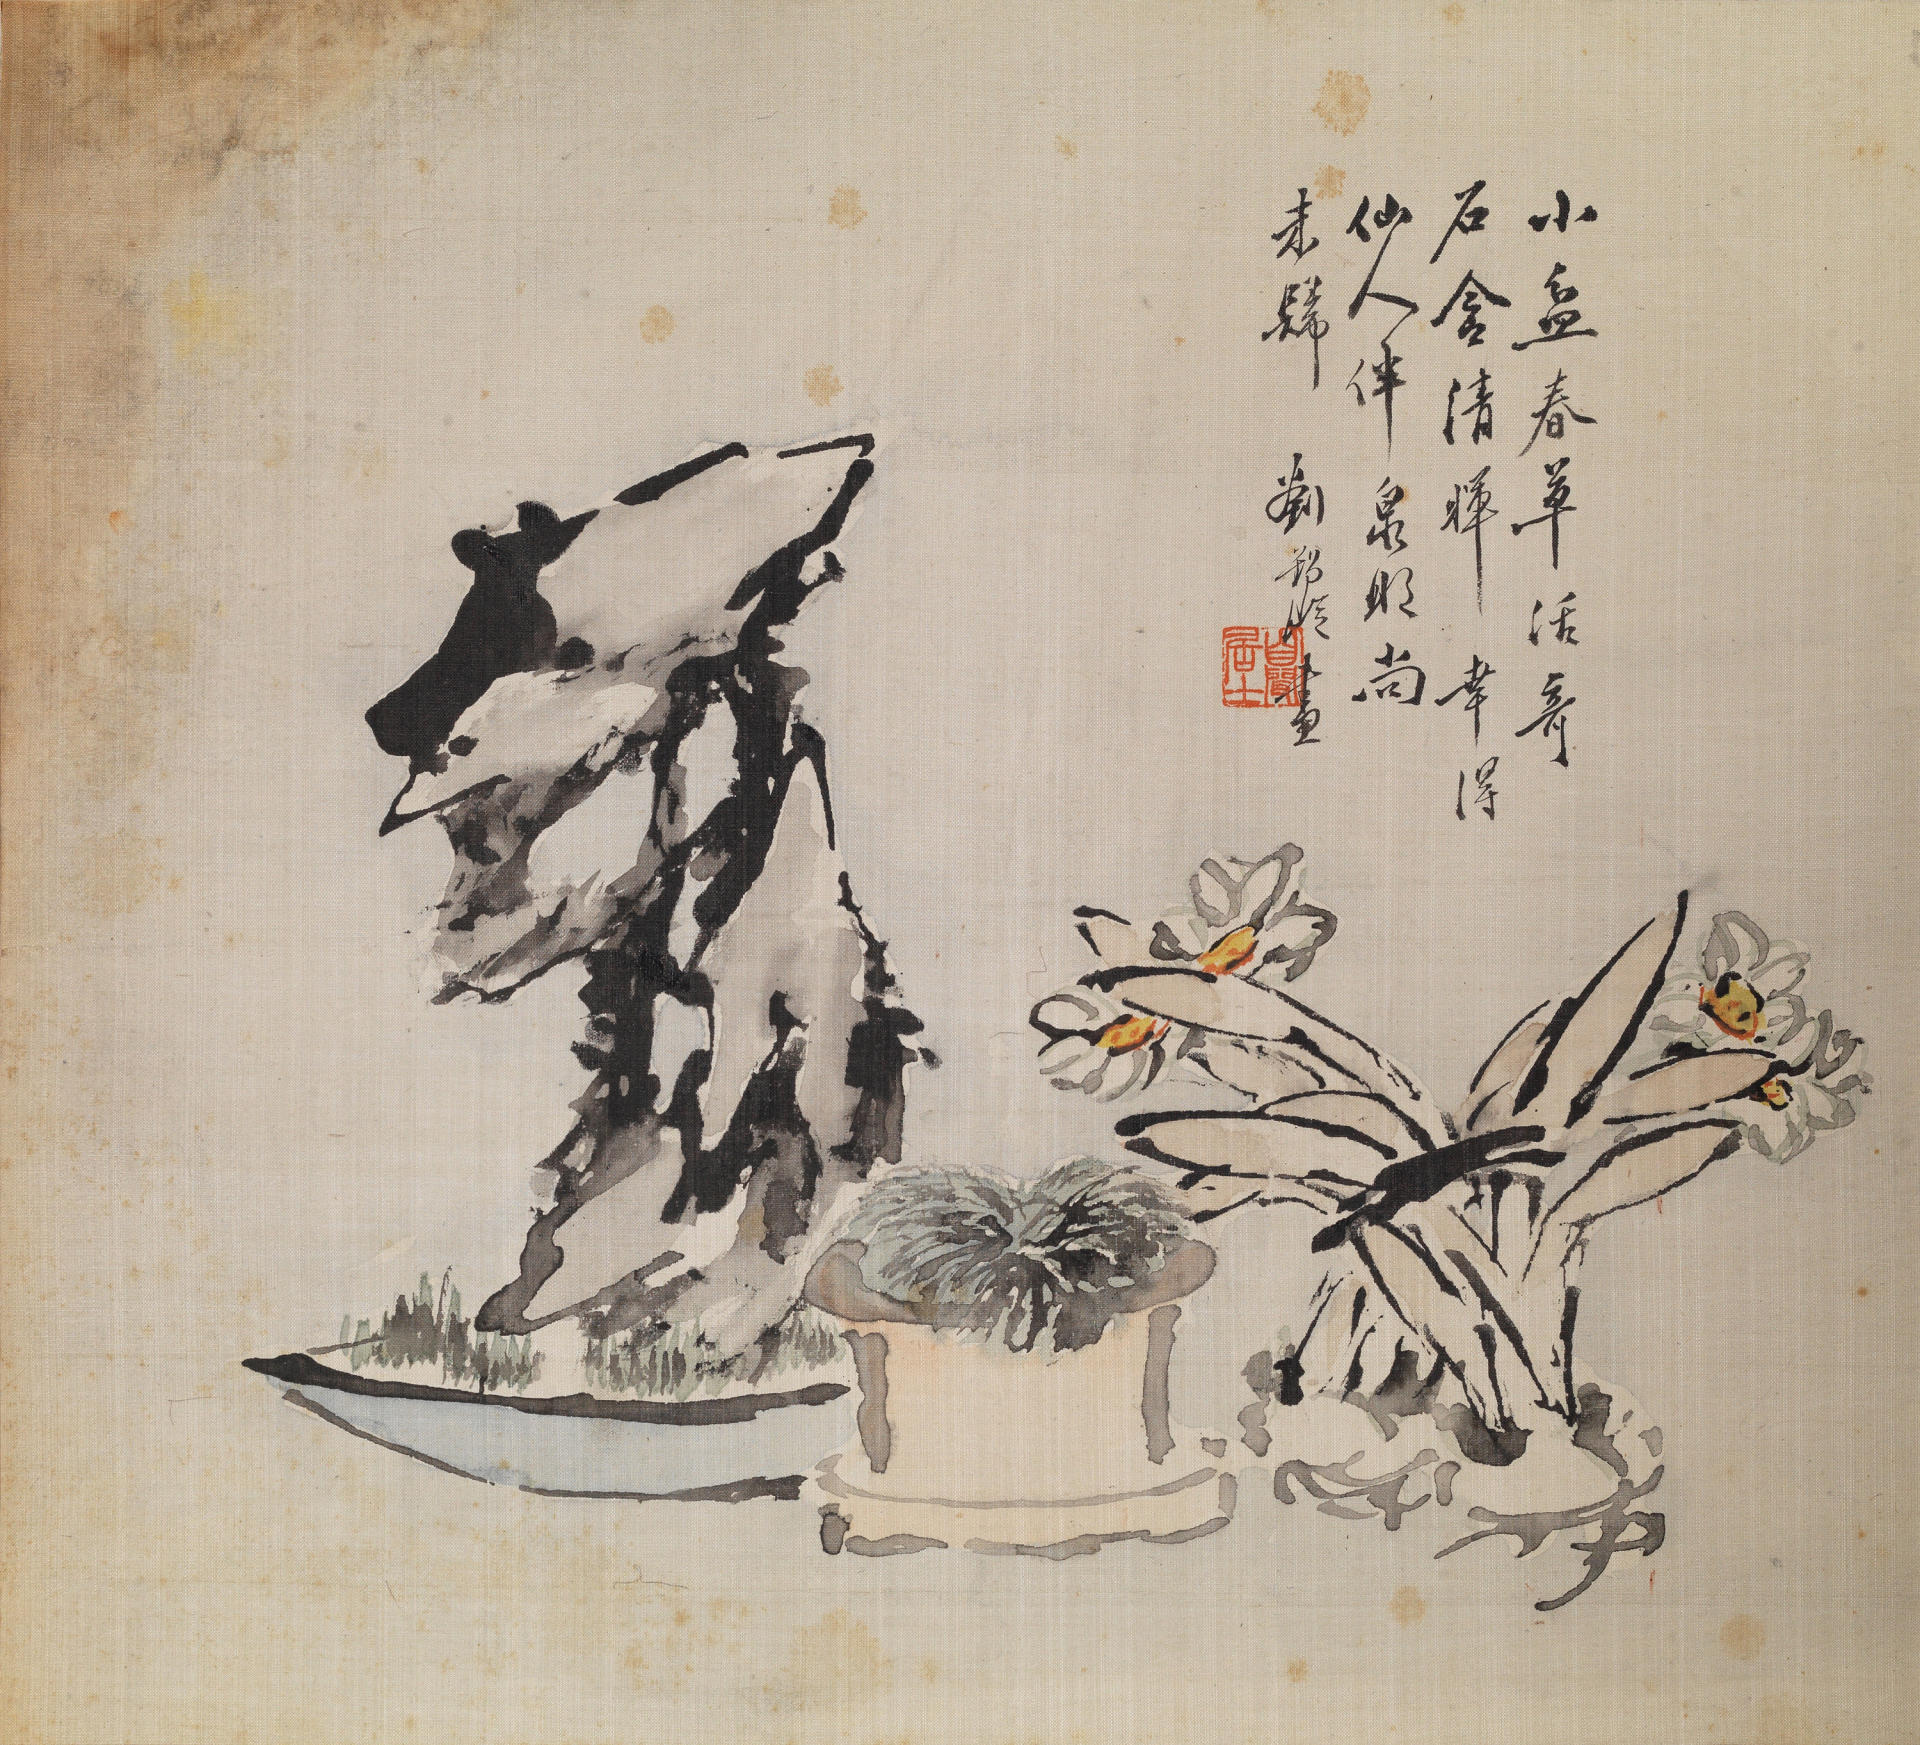 小盆春草活奇
石含清暉幸得
仙人伴泉明尚
未歸 劉錫玲畫
居士